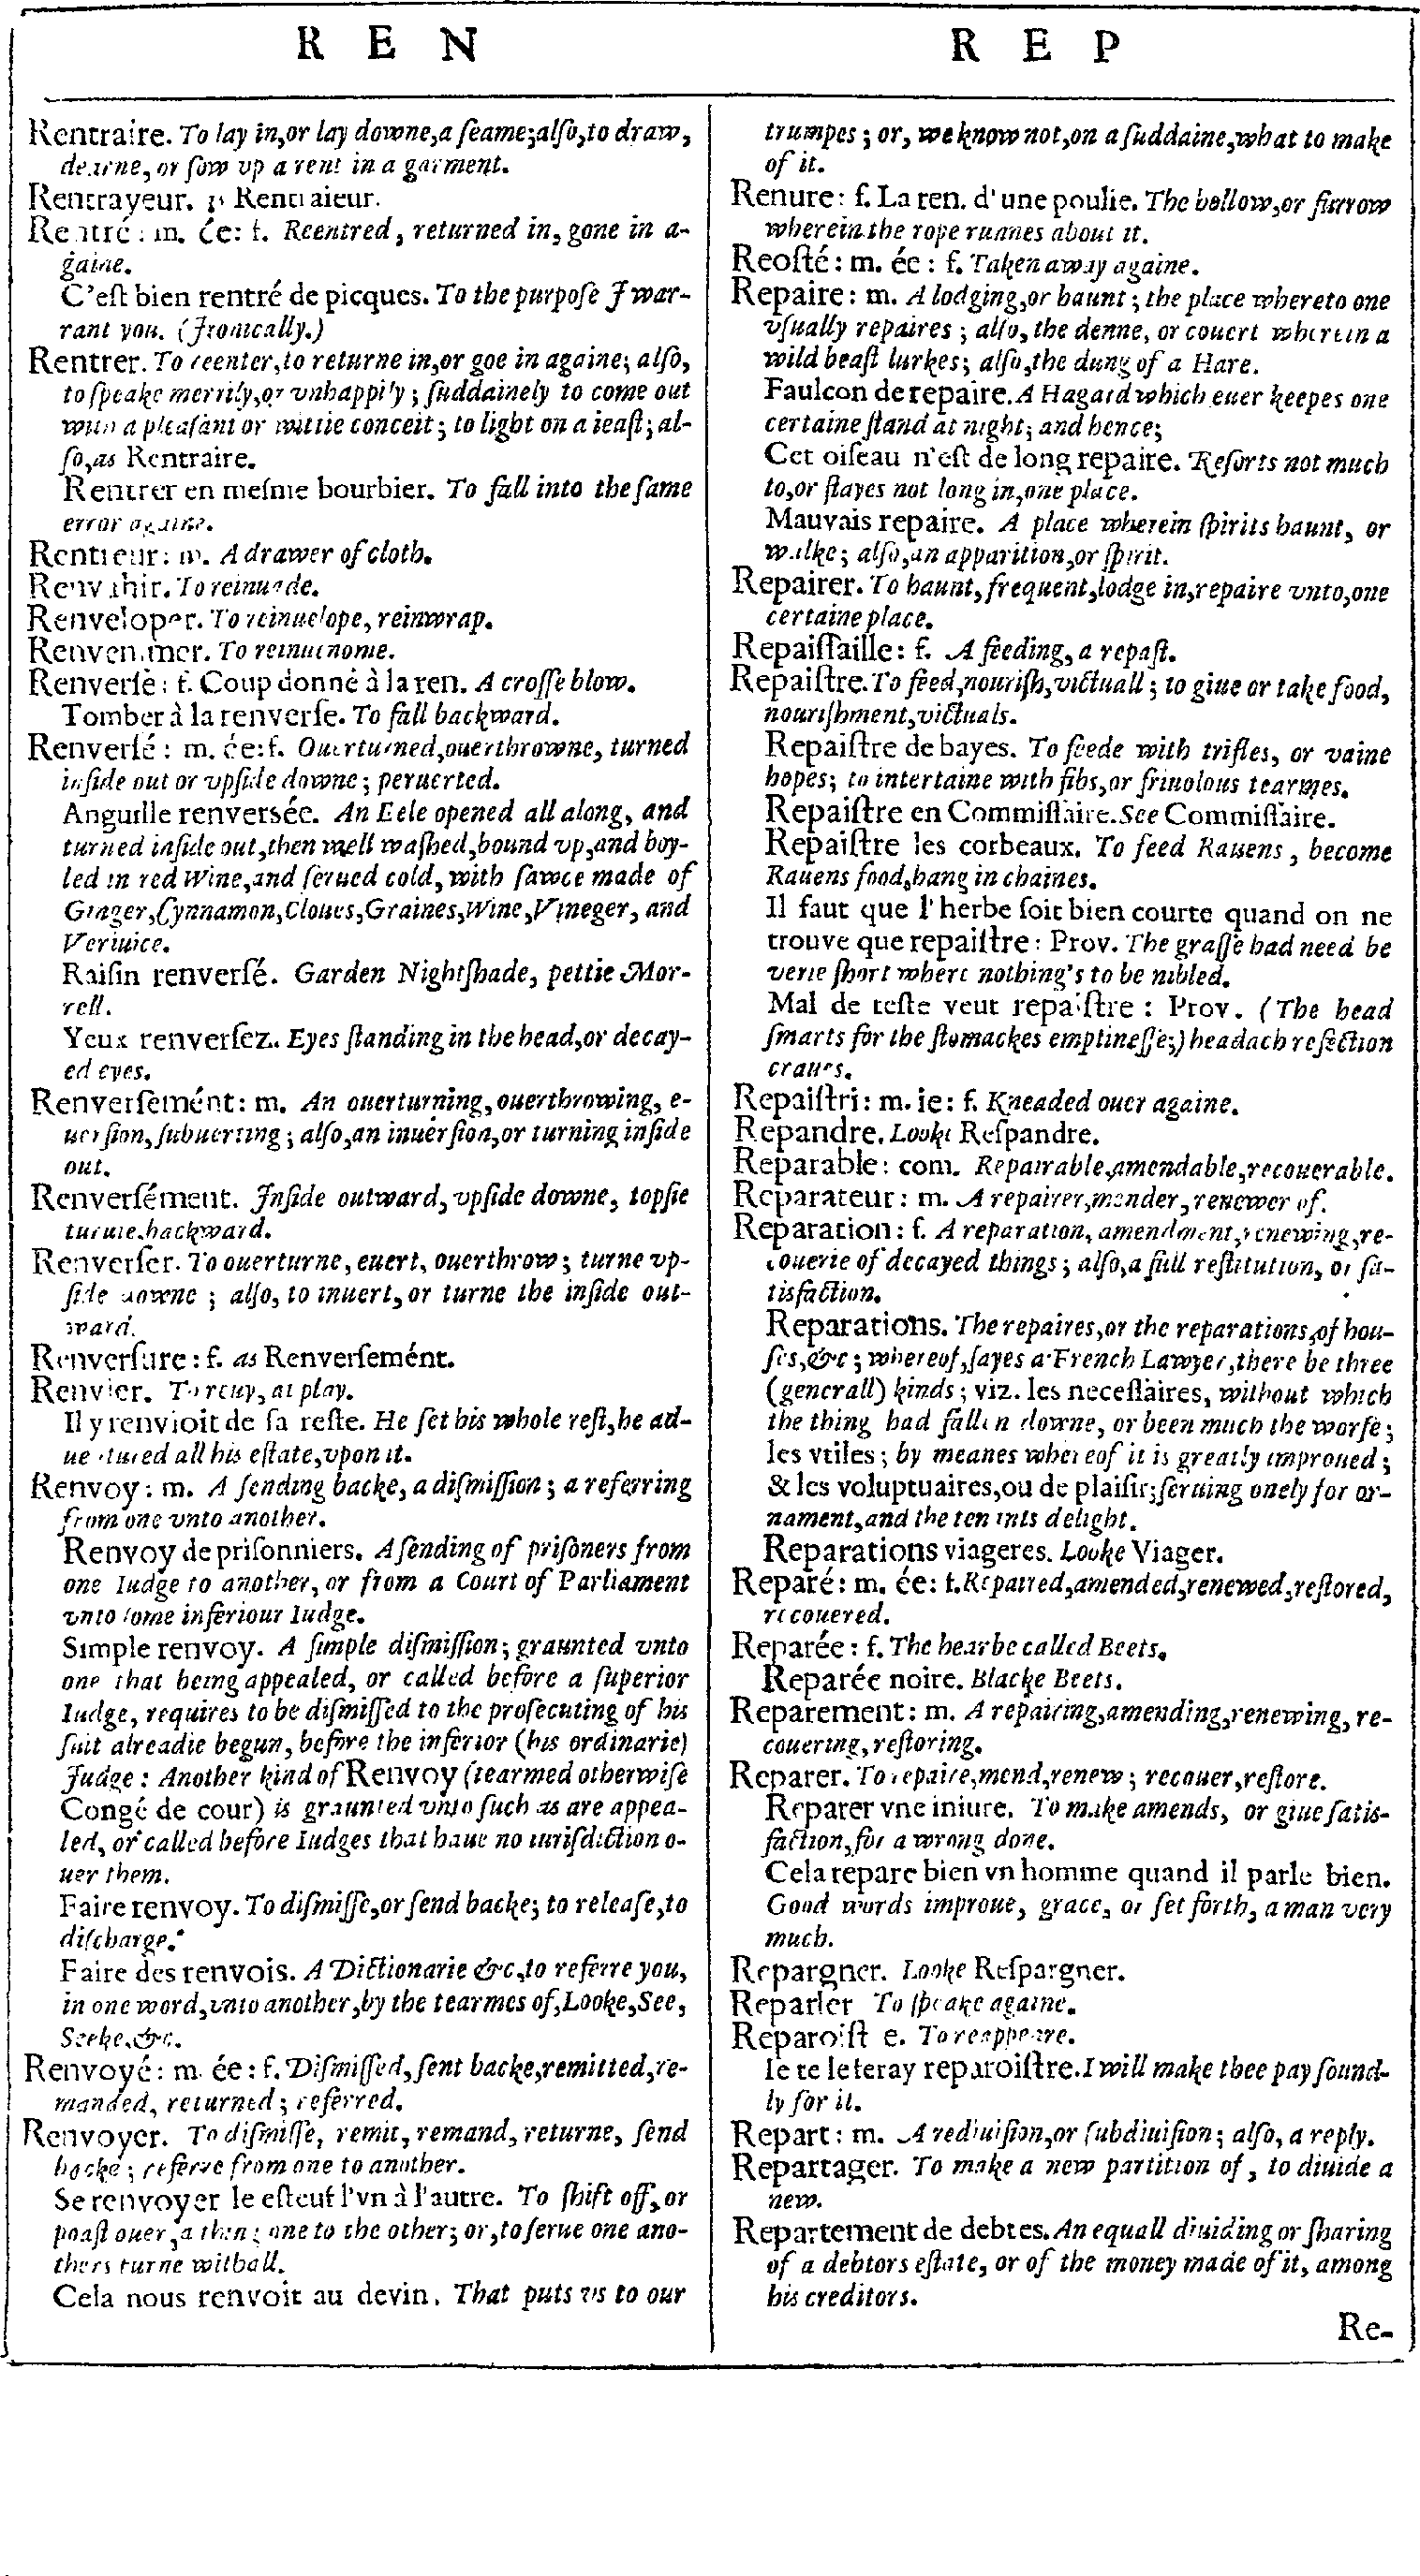 R E N
Rentraire. To lay in, or lay downe, a ſeame; alſo, to draw,
dearne, or ſow vp a rent in a garment.
Rentrayeur. Rentraieur.
Rentré: m. ée: f. Reentred, returned in, gone in a-
gaine.
C'eſt bien rentré de picques. To the purpoſe I war-
rant you. (Ironically.)
Rentrer. To reenter, to returne in, or goe in againe; alſo,
to ſpeake merrily, or vnhappily; ſuddainely to come out
with a pleaſant or wittie conceit; to light on a ieaſt; al-
ſo, as Rentraire.
Rentrer en meſme bourbier. To fall into the ſame
error againe.
Rentreur: m. A drawer of cloth.
Renvahir. To reinuade.
Renveloper. To reinuelope, reinwrap.
Renvenimer. To reinuenome.
Renverſe: f. Coup donné à la ren. A croſſe blow.
Tomber à la renverſe. To fall backward.
Renverſé: m. ée: f. Ouerturned, ouerthrowne, turned
inſide out or vpſide downe; peruerted.
Anguille renversée. An Eele opened all along, and
turned inſide out, then well waſhed, bound vp, and boy-
led in red Wine, and ſerued cold, with ſawce made of
Ginger, Cynnamon, Cloues, Graines, Wine, Vineger, and
Veriuice.
Raiſin renverſé. Garden Nightſhade, pettie Mor-
rell.
Yeux renverſez. Eyes ſtanding in the head, or decay-
ed eyes.
Renverſemént: m. An ouerturning, ouerthrowing, e-
uerſion, ſubuerting; alſo, an inuerſion, or turning inſide
out.
Renverſément. Inſide outward, vpſide downe, topſie
turuie, backward.
Renverſer. To ouerturne, euert, ouerthrow; turne vp-
ſide downe; alſo, to inuert, or turne the inſide out-
ward.
Renverſure: f. as Renverſemént.
Renvier. To reuy, at play.
Il y renvioit de ſa reſte. He ſet his whole reſt, he ad-
uentured all his eſtate, vpon it.
Renvoy: m. A ſending backe, a diſmiſſion; a referring
from one vnto another.
Renvoy de priſonniers. A ſending of priſoners from
one Iudge to another, or from a Court of Parliament
vnto ſome inferiour Iudge.
Simple renvoy. A ſimple diſmiſſion; graunted vnto
one that being appealed, or called before a ſuperior
Iudge, requires to be diſmiſſed to the proſecuting of his
ſuit alreadie begun, before the inferior (his ordinarie)
Judge: Another kind of Renvoy (tearmed otherwiſe
Congé de cour) is graunted vnto ſuch as are appea-
led, or called before Iudges that haue no iuriſdiction o-
uer them.
Faire renvoy. To diſmiſſe, or ſend backe; to releaſe, to
diſcharge.
Faire des renvois. A Dictionarie &c, to referre you,
in one word, vnto another, by the tearmes of, Looke, See,
Seeke, &c.
Renvoyé: m. ée: f. Diſmiſſed, ſent backe, remitted, re-
manded, returned; referred.
Renvoyer. To diſmiſſe, remit, remand, returne, ſend
backe; referre from one to another.
Se renvoyer le eſteuf l'vn à l'autre. To ſhift off, or
poaſt ouer, a thing one to the other; or, to ſerue one ano-
thers turne withall.
Cela nous renvoit au devin. That puts vs to our
R E P
trumpes; or, we know not, on a ſuddaine, what to make
of it.
Renure: f. La ren. d'une poulie. The hollow, or furrow
wherein the rope runnes about it.
Reoſté: m. ée: f. Taken away againe.
Repaire: m. A lodging, or haunt; the place whereto one
vſually repaires; alſo, the denne, or couert wherein a
wild beaſt lurkes; alſo, the dung of a Hare.
Faulcon de repaire. A Hagard which euer keepes one
certaine ſtand at night; and hence;
Cet oiſeau n'eſt de long repaire. Reſorts not much
to, or ſtayes not long in, one place.
Mauvais repaire. A place wherein ſpirits haunt, or
walke; alſo, an apparition, or ſpirit.
Repairer. To haunt, frequent, lodge in, repaire vnto, one
certaine place.
Repaiſſaille: f. A feeding, a repaſt.
Repaiſtre. To feed, nouriſh, victuall; to giue or take food,
nouriſhment, victuals.
Repaiſtre de bayes. To feede with trifles, or vaine
hopes; to intertaine with fibs, or friuolous tearmes.
Repaiſtre en Commiſſaire. See Commiſſaire.
Repaiſtre les corbeaux. To feed Rauens, become
Rauens food, hang in chaines.
Il faut que l'herbe ſoit bien courte quand on ne
trouve que repaiſtre: Prov. The graſſe had need be
verie ſhort where nothing's to be nibled.
Mal de teſte veut repaiſtre: Prov. (The head
ſmarts for the ſtomackes emptineſſe;) headach refection
craues.
Repaiſtri: m. ie: f. Kneaded ouer againe.
Repandre. Looke Reſpandre.
Reparable: com. Repairable, amendable, recouerable.
Reparateur: m. A repairer, mender, renewer of.
Reparation: f. A reparation, amendment, renewing, re-
couerie of decayed things; alſo, a full reſtitution, or ſa-
tisfaction.
Reparations. The repaires, or the reparations, of hou-
ſes, &c; whereof, ſayes a French Lawyer, there be three
(generall) kinds; viz. les neceſſaires, without which
the thing had fallen downe, or been much the worſe;
les vtiles; by meanes whereof it is greatly improued;
& les voluptuaires, ou de plaiſir; ſeruing onely for or-
nament, and the tenants delight.
Reparations viageres. Looke Viager.
Reparé: m. ée: f. Repaired, amended, renewed, reſtored,
recouered.
Reparée: f. The hearbe called Beets.
Reparée noire. Blacke Beets.
Reparement: m. A repairing, amending, renewing, re-
couering, reſtoring.
Reparer. To repaire, mend, renew; recouer, reſtore.
Reparer vne iniure. To make amends, or giue ſatis-
faction, for a wrong done.
Cela repare bien vn homme quand il parle bien.
Good words improue, grace, or ſet forth, a man very
much.
Repargner. Looke Reſpargner.
Reparler To ſpeake againe.
Reparoiſt e. To reappeare.
Ie te le feray reparoiſtre. I will make thee pay ſound-
ly for it.
Repart: m. A rediuiſion, or ſubdiuiſion; alſo, a reply.
Repartager. To make a new partition of, to diuide a
new.
Repartement de debtes. An equall diuiding or ſharing
of a debtors eſtate, or of the money made of it, among
his creditors.
Re-